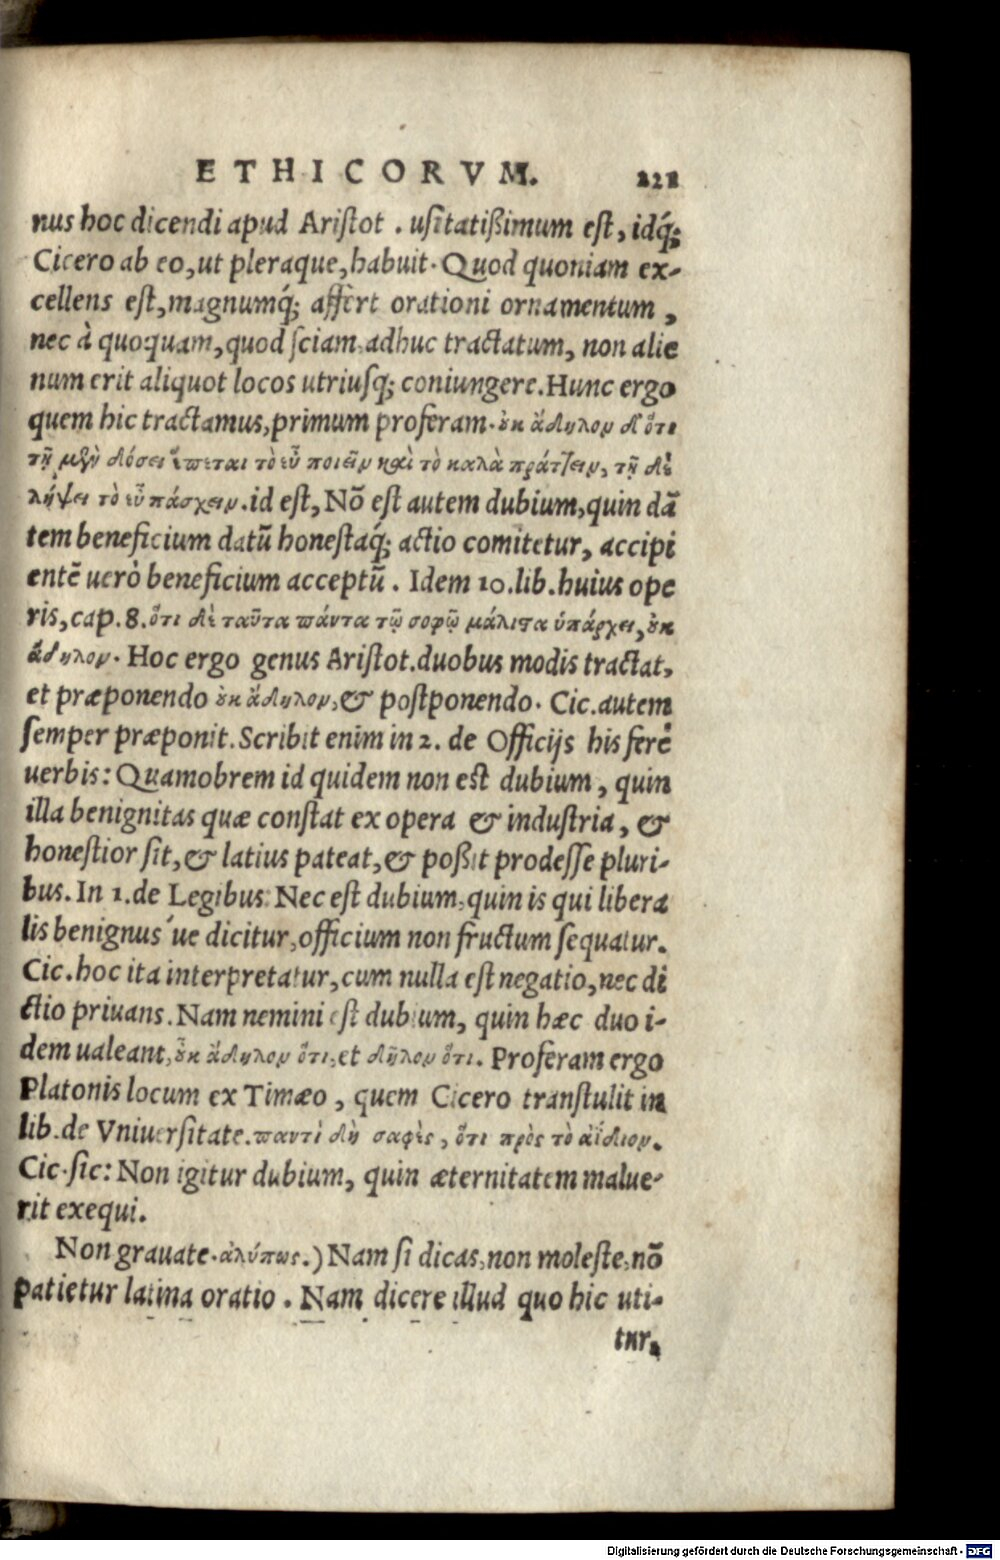 ETHICORVM. 221
nus hoc dicendi apud Aristot. usitatißimum est, idq́;
Cicero ab eo, ut pleraque, habuit. Quod quoniam ex-
cellens est, magnumq́; affert orationi ornamentum,
nec à quoquam, quod sciam, adhuc tractatum, non alie
num erit aliquot locos utriusq; coniungere. Hunc ergo
quem hic tractamus, primum proferam. ὀυκ ἄδηλον δ' ὅτι
τῇ μὲν δόσει ἕπεται τὸ εὖ ποιεῖν καὶ τὸ καλὰ πράττειν, τῇ δὲ
λήψει τὸ εὖ πάσχειν. id est, Nō est autem dubium, quin dā
tem beneficium datū honestaq́; actio comitetur, accipi
entē uerò beneficium acceptū. Idem 10. lib. huius ope
ris, cap. 8. ὅτι δὲ ταῦτα πάντα τῷ σοφῷ μάλιστα ὑπάρχει, ὀυκ
ἄδηλον. Hoc ergo genus Aristot. duobus modis tractat,
et præponendo ὀυκ ἄδηλον, & postponendo. Cic. autem
semper præponit. Scribit enim in 2. de Officijs his ferè
uerbis: Quamobrem id quidem non est dubium, quin
illa benignitas quæ constat ex opera & industria, &
honestior sit, & latius pateat, & poßit prodesse pluri-
bus. In 1. de Legibus: Nec est dubium, quin is qui libera
lis benignus úe dicitur, officium non fructum sequatur.
Cic. hoc ita interpretatur, cum nulla est negatio, nec di
ctio priuans. Nam nemini est dubium, quin hæc duo i-
dem ualeant, ὀυκ ἄδηλον ὅτι, et δῆλον ὅτι. Proferam ergo
Platonis locum ex Timæo, quem Cicero transtulit in
lib. de Vniuersitate. παντὶ δὴ σαφὲς, ὅτι πρὸς τὸ ἀΐδιον.
Cic. sic: Non igitur dubium, quin æternitatem malue-
rit exequi.
Non grauate. ἀλύπως.) Nam si dicas, non moleste, nō
patietur latina oratio. Nam dicere illud quo hic uti-
tur,
Digitalisierung gefördert durch die Deutsche Forschungsgemeinschaft - DFG